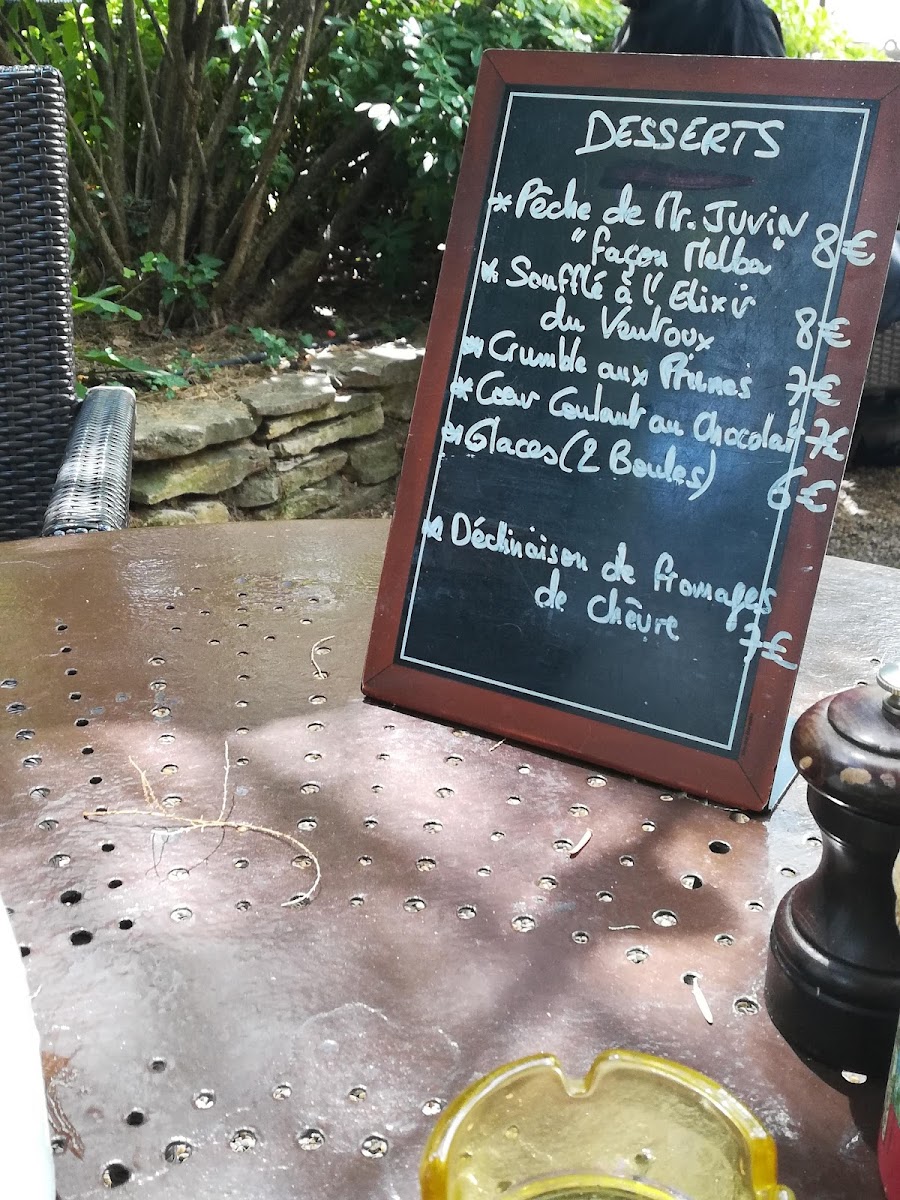 DESSERTS
* Pêche de Mr. JUVIN
"façon Melba" 8€
* Soufflé à l'Elixir
du Ventoux 8€
* Crumble aux Prunes 7€
* Cœur Coulant au Chocolat 7€
* Glaces (2 Boules) 6€
* Déclinaison de fromages
de chèvre 7€